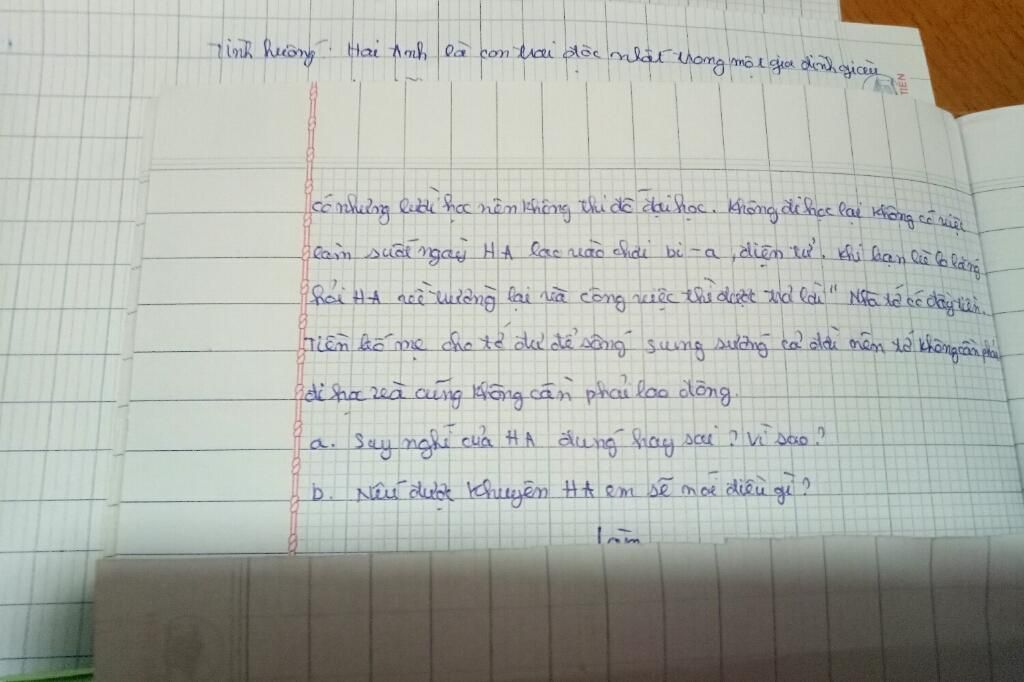 Tình huống: Hải Anh là con trai độc nhất trong một gia đình giàu
TIÊN
có nhưng lười học nên không thi đỗ đại học. Không đi học lại không có việc
làm suốt ngày HA lao vào chơi bi-a, điện tử. Khi bạn bè lo lắng
hỏi HA về tương lai và công việc thì được trả lời " Nhà tớ có đầy tiền.
Tiền bố mẹ cho tớ đủ để sống sung sướng cả đời nên tớ không cần phải
đi học và cũng không cần phải lao động.
a. Suy nghĩ của HA đúng hay sai? Vì sao?
b. Nếu được khuyên HA em sẽ nói điều gì?